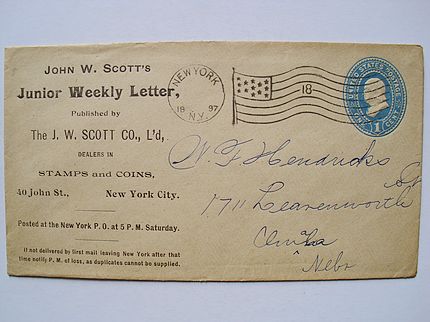 JOHN W. SCOTT'S
Junior Weekly Letter,
Published by
The J. W. SCOTT CO., L'd,
DEALERS IN
STAMPS and COINS,
40 John St., New York City.
Posted at the New York P. O. at 5 P. M. Saturday.
If not delivered by first mail leaving New York after that
time notify P. M. of loss, as duplicates cannot be supplied.
NEW YORK
18 97
N.Y.
18
UNITED STATES POSTAGE
1 CENT
W. F. Hendricks
1711 Leavenworth
Omaha
Nebr